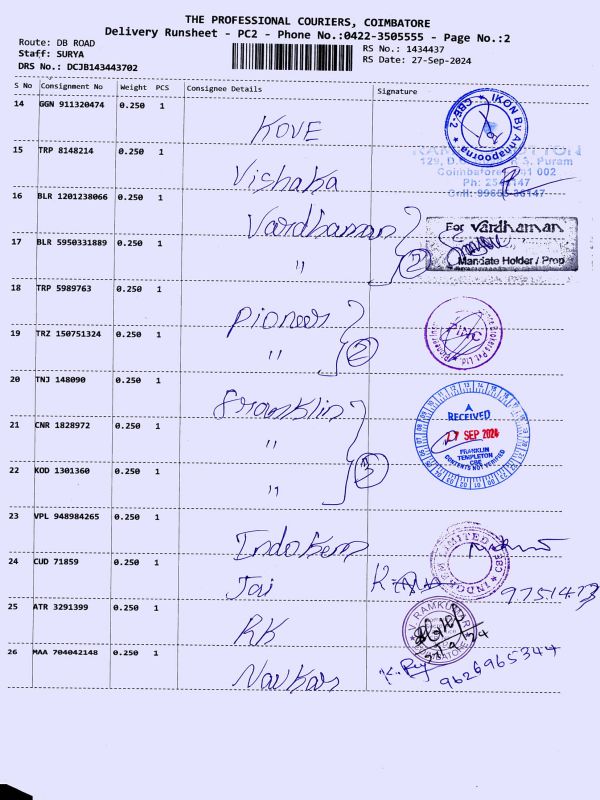 THE PROFESSIONAL COURIERS, COIMBATORE
Delivery Runsheet - PC2 - Phone No.:0422-3505555 - Page No.:2
Route: DB ROAD
Staff: SURYA
DRS No.: DCJB143443702
RS No.: 1434437
RS Date: 27-Sep-2024
S No Consignment No Weight PCS Consignee Details Signature
14 GGN 911320474 0.250 1 KOVE
IKON By Annapoorna * CBE-2 *
15 TRP 8148214 0.250 1 Vishaka
16 BLR 1201238066 0.250 1 Vardhaman
17 BLR 5950331889 0.250 1 " 2
For Vardhaman
Mandate Holder / Prop
18 TRP 5989763 0.250 1 Pioneer
19 TRZ 150751324 0.250 1 " 2
PINC
20 TNJ 148090 0.250 1 Franklin
21 CNR 1828972 0.250 1 "
22 KOD 1301360 0.250 1 " 3
RECEIVED
27 SEP 2024
FRANKLIN
TEMPLETON
CBE
CONTENTS NOT VERIFIED
23 VPL 948984265 0.250 1 Indokem
INDOKEM LIMITED CBE
24 CUD 71859 0.250 1 Jai
25 ATR 3291399 0.250 1 RK
V. RAMKUMAR
26 MAA 704042148 0.250 1 Navkar
9626965344